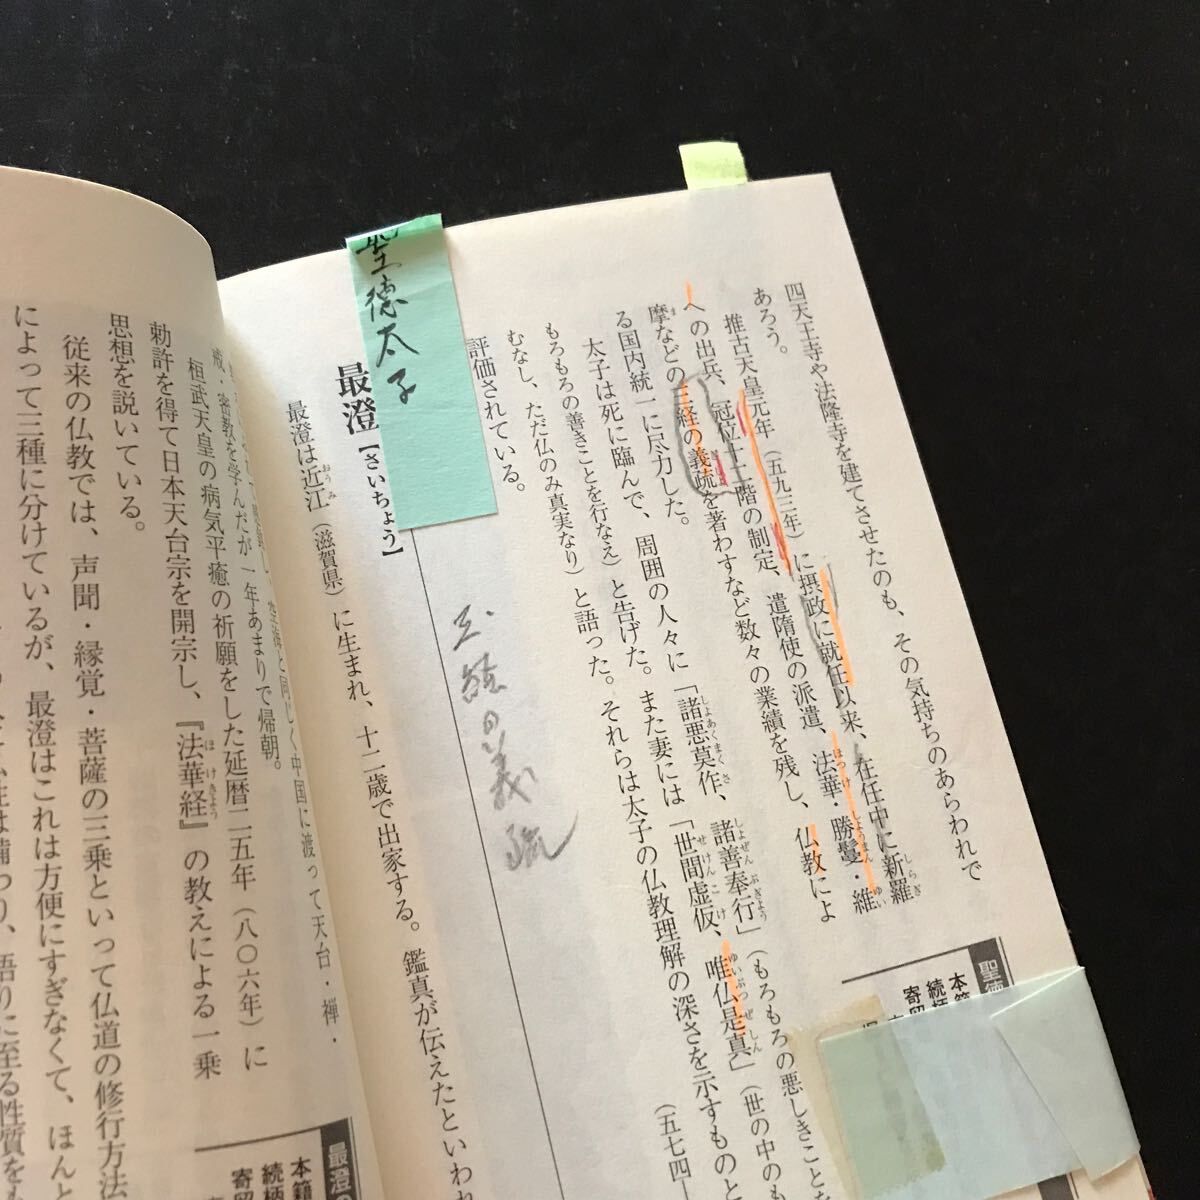 聖徳太子
四天王寺や法隆寺を建てさせたのも、その気持ちのあらわれで
あろう。
推古天皇元年(五九三年)に摂政に就任以来、在任中に新羅
への出兵、冠位十二階の制定、遣隋使の派遣、法華・勝鬘・維
摩などの三経の義疏を著わすなど数々の業績を残し、仏教によ
る国内統一に尽力した。
太子は死に臨んで、周囲の人々に「諸悪莫作、諸善奉行」(もろもろの悪しきことを
もろもろの善きことを行なえ)と告げた。また妻には「世間虚仮、唯仏是真」(世の中のも
むなし、ただ仏のみ真実なり)と語った。それらは太子の仏教理解の深さを示すものと
評価されている。
(五七四—
三経の義疏
最澄【さいちょう】
最澄は近江(滋賀県)に生まれ、十二歳で出家する。鑑真が伝えたといわれ
空海と同じく中国に渡って天台・禅・
戒・密教を学んだが一年あまりで帰朝。
桓武天皇の病気平癒の祈願をした延暦二五年(八〇六年)に
勅許を得て日本天台宗を開宗し、『法華経』の教えによる一乗
思想を説いている。
従来の仏教では、声聞・縁覚・菩薩の三乗といって仏道の修行方法
によって三種に分けているが、最澄はこれは方便にすぎなくて、ほんと
性は備わり、悟りに至る性質をも
聖徳
本籍
続柄
寄留
最澄の
本籍
続柄
寄留